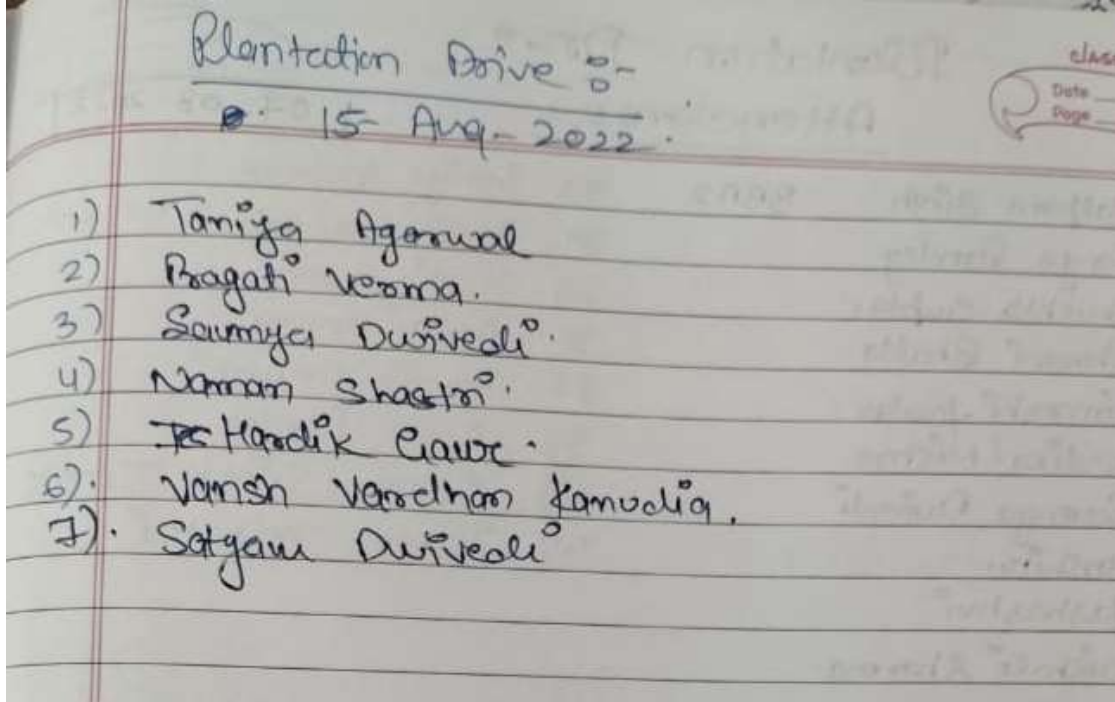 Plantation Drive :-
15 Aug - 2022.
Date
Page
1) Taniya Agarwal
2) Pragati Verma.
3) Saumya Dwivedi.
4) Naman Shastri.
5) Hardik Gaur.
6). Vansh Vardhan Kanudia.
7). Satyam Dwivedi